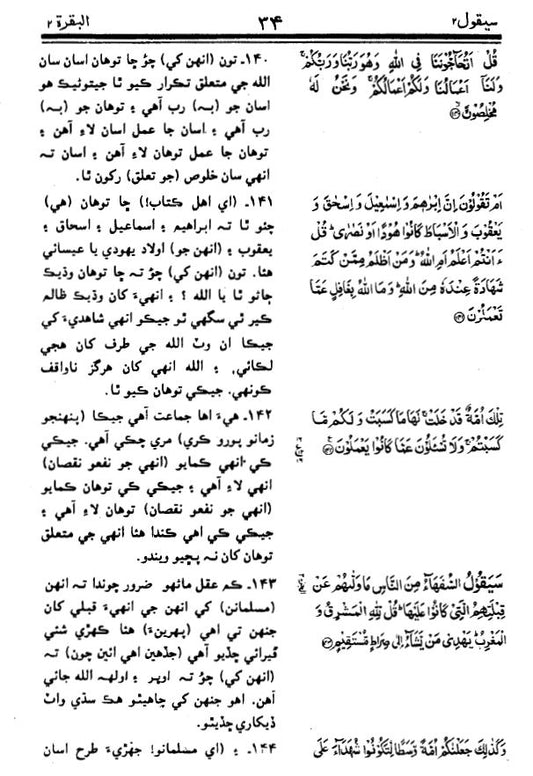 سيقول ٢
٣۴
البقرة ٢
قُلْ اَتُحَآجُّوْنَنَا فِى اللّٰهِ وَهُوَ رَبُّنَا وَرَبُّكُمْ ۚ
وَلَنَآ اَعْمَالُنَا وَلَكُمْ اَعْمَالُكُمْ ۚ وَنَحْنُ لَهٗ
مُخْلِصُوْنَ ۙ
١۴٠ـ تون (انهن کي) چؤ ڇا توهان اسان سان
الله جي متعلق تڪرار ڪيو ٿا جيتوڻيڪ هو
اسان جو (به) رب آهي ۽ توهان جو (به)
رب آهي ۽ اسان جا عمل اسان لاءِ آهن ۽
توهان جا عمل توهان لاءِ آهن ۽ اسان ته
انهي سان خلوص (جو تعلق) رکون ٿا.
اَمْ تَقُوْلُوْنَ اِنَّ اِبْرٰهٖمَ وَ اِسْمٰعِيْلَ وَ اِسْحٰقَ وَ
يَعْقُوْبَ وَ الْاَسْبَاطَ كَانُوْا هُوْدًا اَوْ نَصٰرٰى ؕ قُلْ
ءَ اَنْتُمْ اَعْلَمُ اَمِ اللّٰهُ ؕ وَ مَنْ اَظْلَمُ مِمَّنْ كَتَمَ
شَهَادَةً عِنْدَهٗ مِنَ اللّٰهِ ؕ وَ مَا اللّٰهُ بِغَافِلٍ عَمَّا
تَعْمَلُوْنَ
١۴١ـ (اي اهل ڪتاب!) ڇا توهان (هي)
چئو ٿا ته ابراهيم ۽ اسماعيل ۽ اسحاق ۽
يعقوب ۽ (انهن جو) اولاد يهودي يا عيسائي
هئا. تون (انهن کي) چؤ ته ڇا توهان وڌيڪ
ڄاڻو ٿا يا الله ؟ ۽ انهيءَ کان وڌيڪ ظالم
ڪير ٿي سگهي ٿو جيڪو انهي شاهديءَ کي
جيڪا ان وٽ الله جي طرف کان هجي
لڪائي, ۽ الله انهي کان هرگز ناواقف
ڪونهي. جيڪي توهان ڪيو ٿا.
تِلْكَ اُمَّةٌ قَدْ خَلَتْ ۚ لَهَا مَا كَسَبَتْ وَ لَكُمْ مَّا
كَسَبْتُمْ ۚ وَ لَا تُسْئَلُوْنَ عَمَّا كَانُوْا يَعْمَلُوْنَ
١۴٢ـ هيءَ اها جماعت آهي جيڪا (پنهنجو
زمانو پورو ڪري) مري چڪي آهي. جيڪي
کي انهي ڪمايو (انهي جو نفعو نقصان)
انهي لاءِ آهي ۽ جيڪي کي توهان ڪمايو
(انهي جو نفعو نقصان) توهان لاءِ آهي ۽
جيڪي کي اهي ڪندا هئا انهي جي متعلق
توهان کان نه پڇيو ويندو.
سَيَقُوْلُ السُّفَهَآءُ مِنَ النَّاسِ مَا وَلّٰىهُمْ عَنْ
قِبْلَتِهِمُ الَّتِىْ كَانُوْا عَلَيْهَا ؕ قُلْ لِّلّٰهِ الْمَشْرِقُ وَ
الْمَغْرِبُ ؕ يَهْدِىْ مَنْ يَّشَآءُ اِلٰى صِرَاطٍ مُّسْتَقِيْمٍ
١۴٣ـ ڪم عقل ماڻهو ضرور چوندا ته انهن
(مسلمانن) کي انهن جي انهيءَ قبلي کان
جنهن تي اهي (پهرين) هئا ڪهڙي شئي
ڦيرائي ڇڏيو آهي (جڏهين اهي ائين چون) ته
(انهن کي) چؤ ته اوڀر ۽ اولهه الله جائي
آهن. اهو جنهن کي چاهيندو هڪ سڌي واٽ
ڏيکاري ڇڏيندو.
وَ كَذٰلِكَ جَعَلْنٰكُمْ اُمَّةً وَّسَطًا لِّتَكُوْنُوْا شُهَدَآءَ عَلَى
١۴۴ـ ۽ (اي مسلمانو! جهڙيءَ طرح اسان